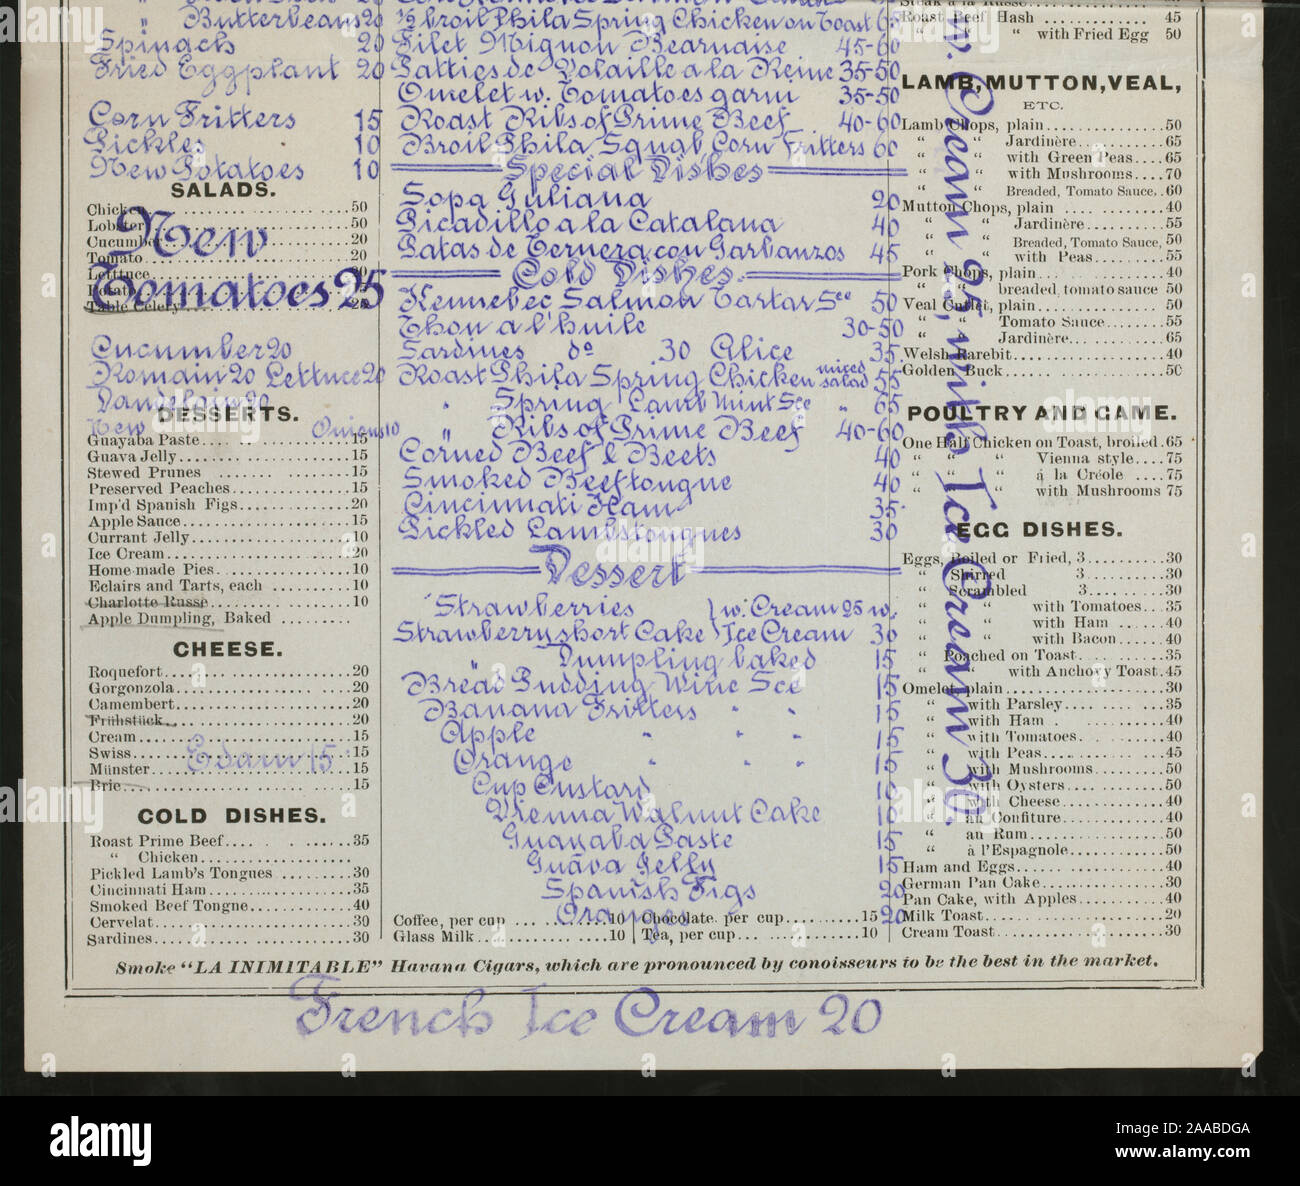 " Butterbeans 20
Spinach 20
Fried Eggplant 20
Corn Fritters 15
Pickles 10
New Potatoes 10
SALADS.
Chicken 50
Lobster 50
Cucumber 20
Tomato 20
Letttuce 20
Potato 15
Table Celery 25
New
Tomatoes 25
Cucumber 20
Romain 20 Lettuce 20
Dandelion 20
New Onions 10
DESSERTS.
Guayaba Paste 15
Guava Jelly 15
Stewed Prunes 15
Preserved Peaches 15
Imp'd Spanish Figs 20
Apple Sauce 15
Currant Jelly 10
Ice Cream 20
Home-made Pies 10
Eclairs and Tarts, each 10
Charlotte Russe 10
Apple Dumpling, Baked
CHEESE.
Roquefort 20
Gorgonzola 20
Camembert 20
Frühstück 20
Cream 15
Swiss 15
Edam 15
Münster 15
Brie 15
COLD DISHES.
Roast Prime Beef 35
" Chicken
Pickled Lamb's Tongues 30
Cincinnati Ham 35
Smoked Beef Tongne 40
Cervelat 30
Sardines 30
½ broil Phila Spring Chicken on Toast 65
Filet Mignon Bearnaise 45-60
Patties de Volaille a la Reine 35-50
Omelet w. Tomatoes garni 35-50
Roast Ribs of Prime Beef 40-60
Broil Phila Squab Corn Fritters 60
Special Dishes
Sopa Juliana 20
Picadillo a la Catalana 40
Patas de Ternera con Garbanzos 45
Cold Dishes.
Kennebec Salmon Tartar Sce 50
Thon a l'huile 30-50
Sardines do 30 Alice 35
Roast Phila Spring Chicken mixed salad 55
" Spring Lamb Mint Sce " 65
" Ribs of Prime Beef 40-60
Corned Beef & Beets 40
Smoked Beeftongue 40
Cincinnati Ham 35
Pickled Lambstongues 30
Dessert
Strawberries } w. Cream 25 w.
Strawberryshort Cake } Ice Cream 30
Dumpling baked 15
Bread Pudding Wine Sce 15
Banana Fritters " " 15
Apple " " " 15
Orange " " " 15
Cup Custard 10
Vienna Walnut Cake 10
Guayaba Paste 15
Guava Jelly 15
Spanish Figs 20
Oranges 20
Coffee, per cup 10 | Chocolate. per cup 15
Glass Milk 10 | Tea, per cup 10
Steak à la Russe
Roast Beef Hash 45
" " " with Fried Egg 50
LAMB, MUTTON, VEAL,
ETC.
Lamb Chops, plain 50
" " Jardinère 65
" " with Green Peas 65
" " with Mushrooms 70
" " Breaded, Tomato Sauce 60
Mutton Chops, plain 40
" " Jardinère 55
" " Breaded, Tomato Sauce, 50
" " with Peas 55
Pork Chops, plain 40
" " breaded, tomato sauce 50
Veal Cutlet, plain 50
" " Tomato Sauce 55
" " Jardinère 65
Welsh Rarebit 40
Golden Buck 50
POULTRY AND GAME.
One Half Chicken on Toast, broiled 65
" " " Vienna style 75
" " " á la Créole 75
" " " with Mushrooms 75
EGG DISHES.
Eggs, Boiled or Fried, 3 30
" Shirred 3 30
" Scrambled 3 30
" " with Tomatoes 35
" " with Ham 40
" " with Bacon 40
" Poached on Toast 35
" " with Anchovy Toast 45
Omelet, plain 30
" with Parsley 35
" with Ham 40
" with Tomatoes 40
" with Peas 45
" with Mushrooms 50
" with Oysters 50
" with Cheese 40
" au Confiture 40
" au Rum 50
" à l'Espagnole 50
Ham and Eggs 40
German Pan Cake 30
Pan Cake, with Apples 40
Milk Toast 20
Cream Toast 30
w. Cream 25, with Ice Cream 30.
Smoke "LA INIMITABLE" Havana Cigars, which are pronounced by conoisseurs to be the best in the market.
French Ice Cream 20
alamy
Image ID: 2AABDGA
www.alamy.com